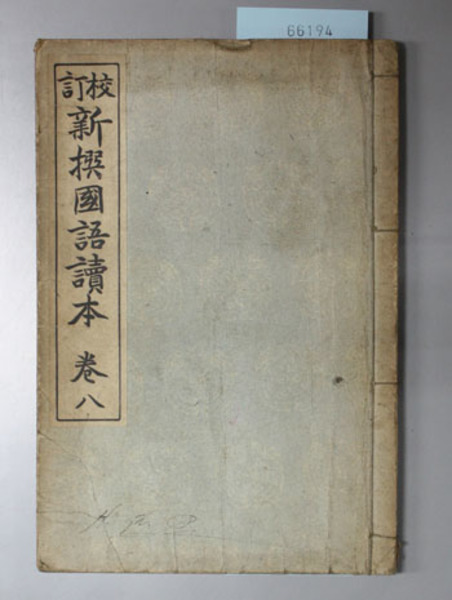 66194
校訂
新撰國語讀本 卷八